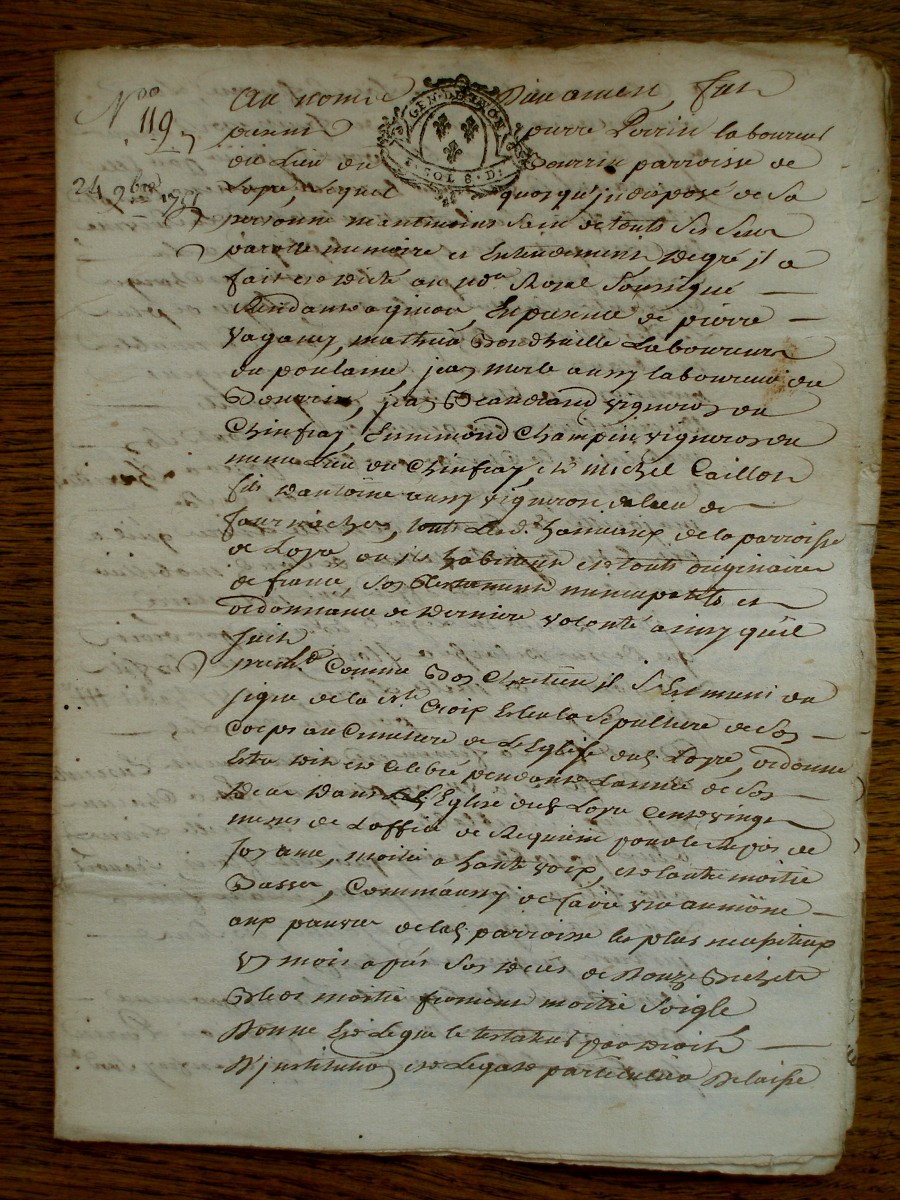 Noo
119
24 9bre 1751
GEN. DE LYON
SOLS. D.
au nom de Dieu amen, fut
present pierre Perrin laboureur
du Lieu du Bourrin parroisse de
Loyre, Lequel quoyqu'jndisposé de Sa
personne neantmoins Sain de touts Ses Sens
parolle memoire et Entendement, De gré jl a
fait et dicté au nore Royal Sousigné
Residant a givor, En presence de pierre
Vaganay, mathieu laboureurs
du poulame, jean merle aussy laboureur du
Bourrin, jean Beaudrand vigneron du
Chinfray, Emmond Champin, vigneron du
meme Lieu du Chinfray, et michel Caillon
fils d'antoine aussy vigneron du lieu de
touts Lesd. hameaux de la parroisse
de Loyre ou jls habitent et touts originaires
de france Son testament nuncupatif et
ordonnance de derniere volonté ainsy qu'il
Suit
premt Comme Bon Chretien jl S'est muni du
Signe de la ste Croix Eslu la Sepulture de Son
Corps au Cimetiere de L'Eglise dud. Loyre, ordonne
Estre dit et Celebré pendant L'année de Son
deces dans Lad. Eglise dud. Loyre Cent vingt
messes de L'office de Requiem pour le Repos de
Son ame, moitié a haute voix, et l'autre moitié
Basse, Comm'aussy de faire une aumône
aux pauvres de lad. parroisse les plus necessiteux
un mois après Son deces de Douze Bichets
Bled moitié froment moitié Soigle
Donne Et Legue le testateur par droit
D'jnstitution et Legat particulier Delaisse